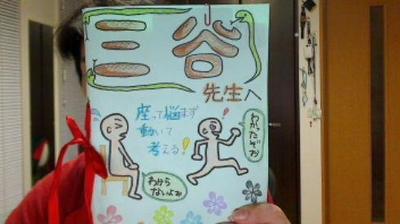 三谷
先生へ
座って悩まず
動いて
考える!
わかったぞお
わから
ないよお